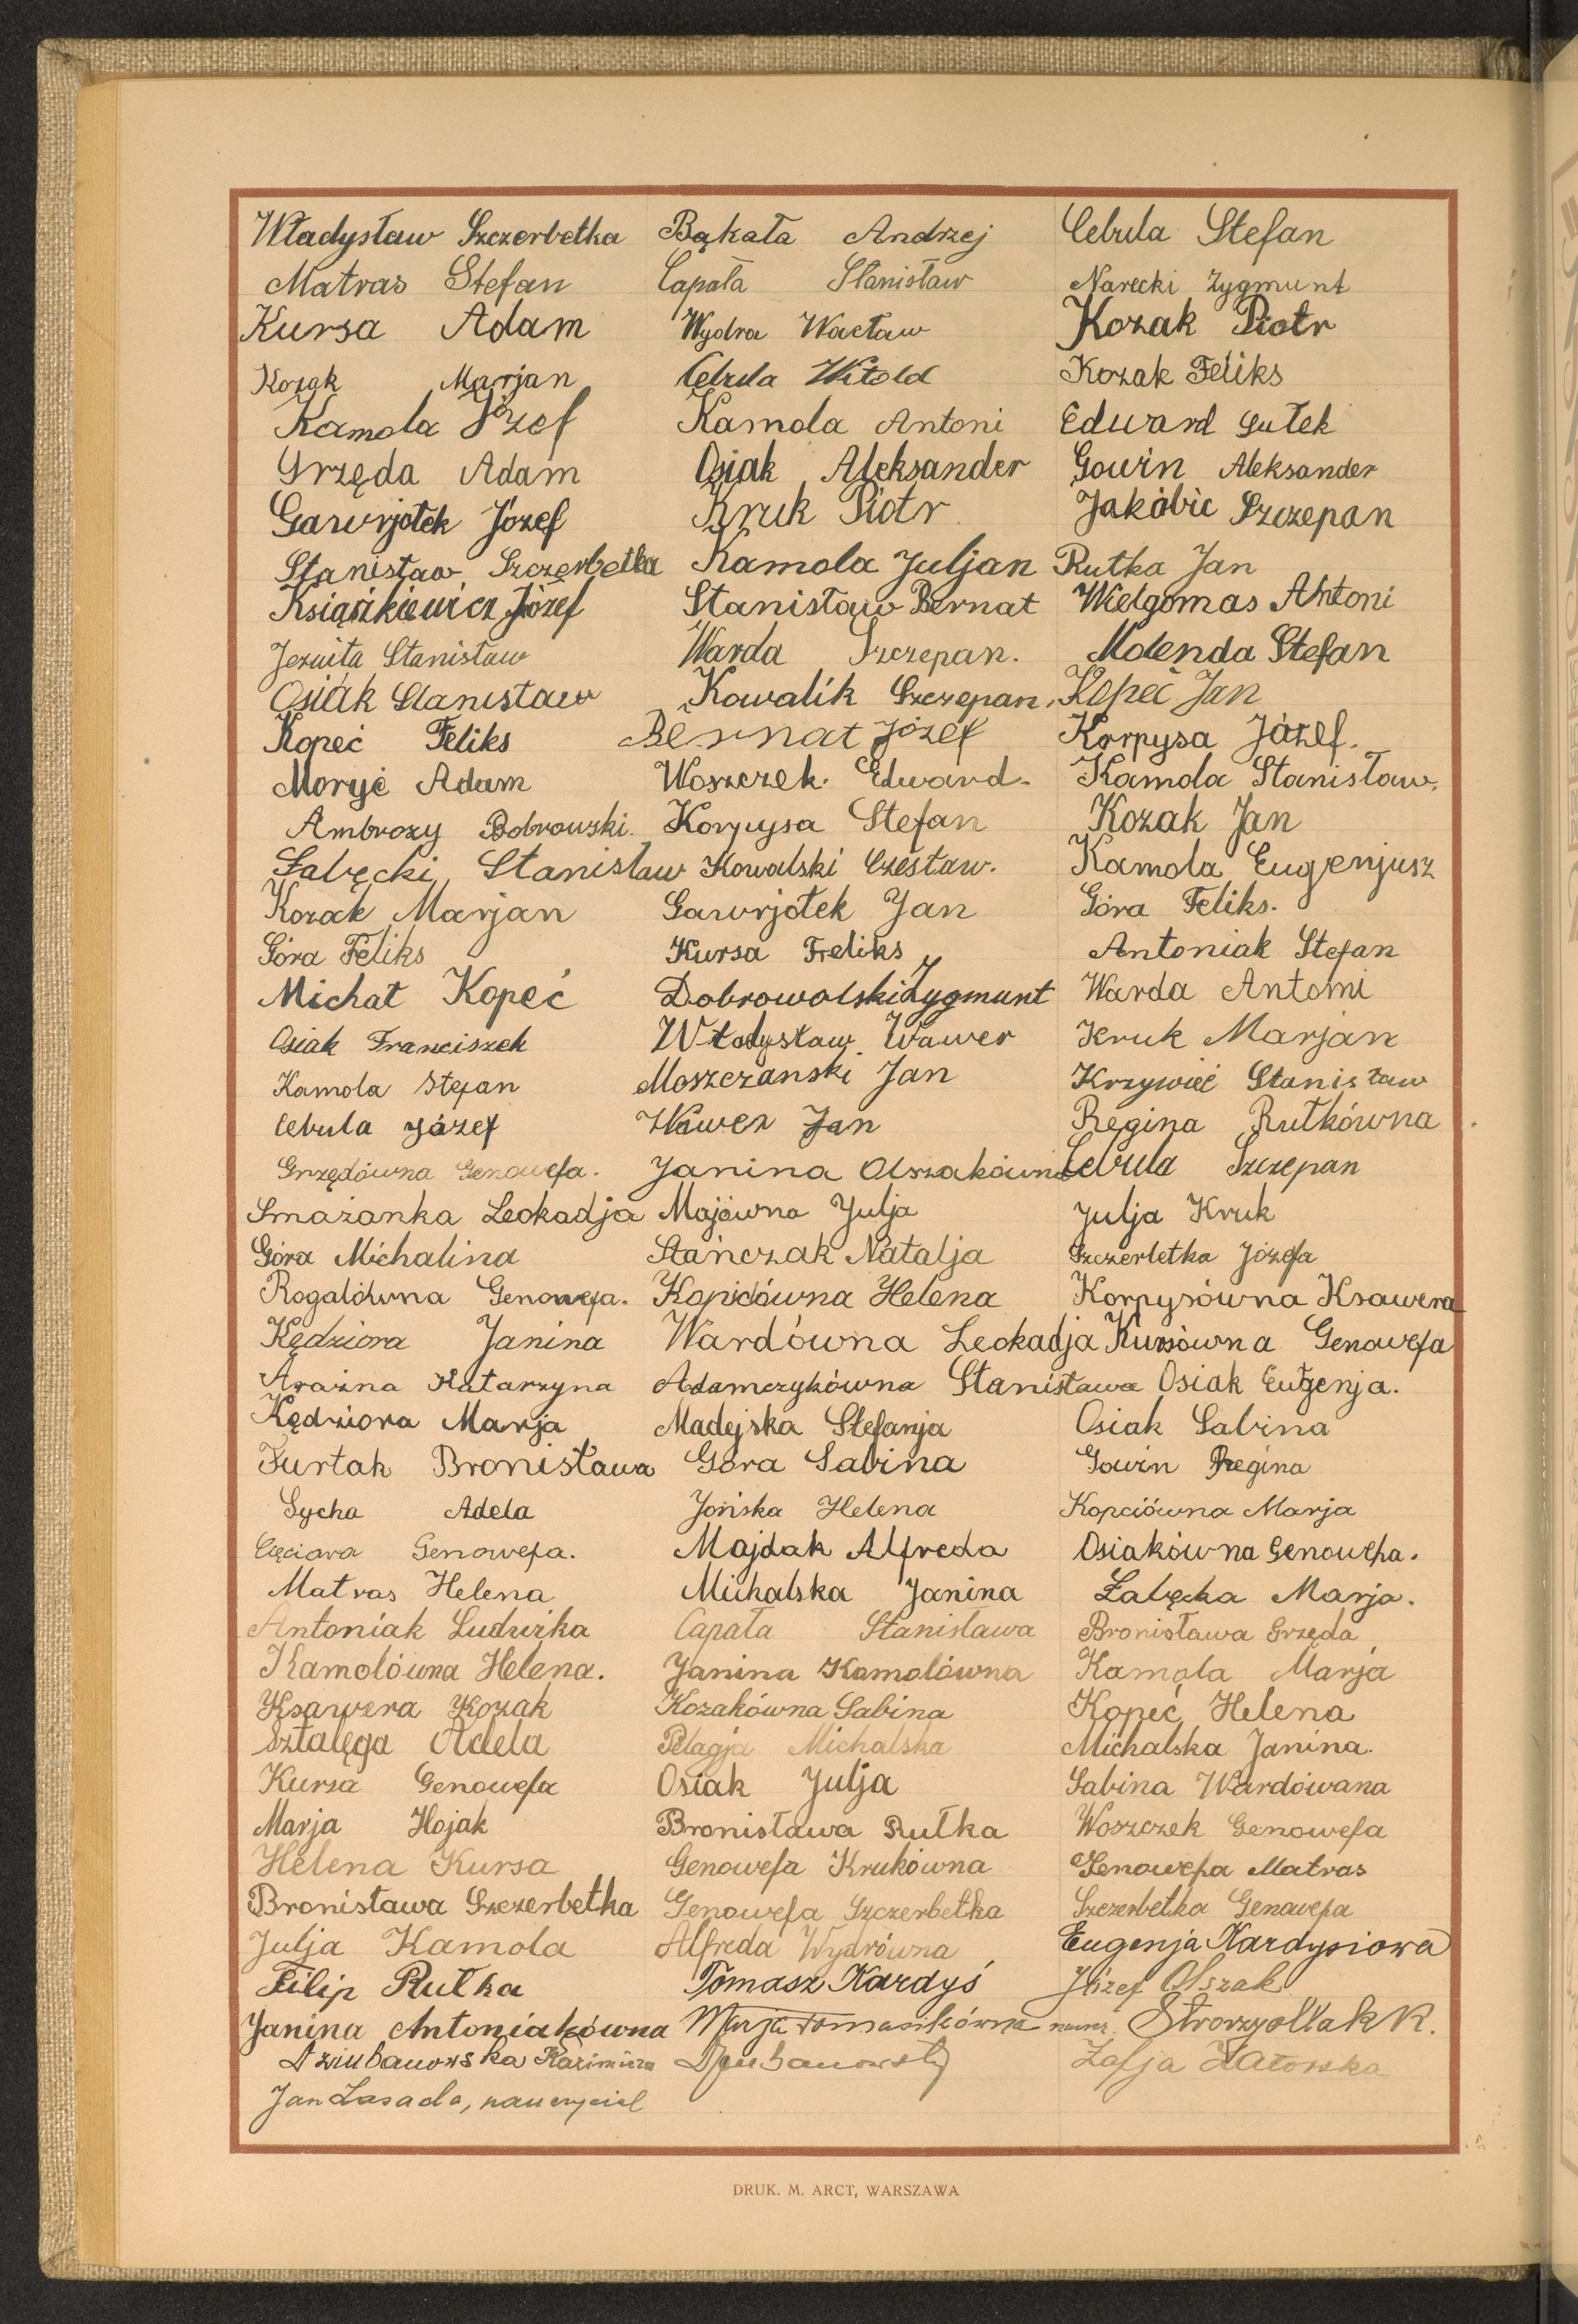 Władysław Szczerbetka Bąkała Andrzej Cebula Stefan
Matras Stefan Capała Stanisław Narecki Zygmunt
Kursa Adam Wydra Wacław Kozak Piotr
Kozak Marjan Cebula Witold Kozak Feliks
Kamola Józef Kamola Antoni Edward Sułek
Grzęda Adam Osiak Aleksander Gowin Aleksander
Gawrjołek Józef Kruk Piotr Jakóbic Szczepan
Stanisław Szczerbetka Kamola Juljan Rutka Jan
Książkiewicz Józef Stanisław Bernat Wielgomas Antoni
Jezuita Stanisław Warda Szczepan. Molenda Stefan
Osiak Stanisław Kowalik Szczepan. Kopeć Jan
Kopeć Feliks Bernat Józef Korpysa Józef.
Moryć Adam Woszczek. Edward. Kamola Stanisław.
Ambrozy Bobrowski. Korpysa Stefan Kozak Jan
Łabęcki Stanisław Kowalski Czesław. Kamola Eugenjusz
Kozak Marjan Gawrjołek Jan Góra Feliks.
Góra Feliks Kursa Feliks Antoniak Stefan
Michał Kopeć Dobrowolski Zygmunt Warda Antoni
Osiak Franciszek Władysław Wawer Kruk Marjan
Kamola Stefan Moszczański Jan Krzywieć Stanisław
Cebula Józef Wawer Jan Regina Rutkówna
Grzędówna Genowefa. Janina Olszakówna Cebula Szczepan
Smażanka Leokadja Majówna Julja Julja Kruk
Góra Michalina Stańczak Natalja Szczerbetka Józefa
Rogalówna Genowefa. Kopciówna Helena Korpysówna Ksawera
Kędziora Janina Wardówna Leokadja Kursówna Genowefa
Katarzyna Adamczykówna Stanisława Osiak Eugenja.
Kędziora Marja Madejska Stefanja Osiak Sabina
Furtak Bronisława Góra Sabina Gowin Regina
Sycha Adela Jońska Helena Kopciówna Marja
Cięciara Genowefa. Majdak Alfreda Osiakówna Genowefa.
Matras Helena Michalska Janina Łabęcka Marja.
Antoniak Ludwika Capała Stanisława Bronisława Grzęda
Kamolówna Helena. Janina Kamolówna Kamola Marja
Ksawera Kozak Kozakówna Sabina Kopeć Helena
Sztalęga Adela Pelagja Michalska Michalska Janina.
Kursa Genowefa Osiak Julja Sabina Wardówana
Marja Hojak Bronisława Rutka Woszczek Genowefa
Helena Kursa Genowefa Krukówna Genowefa Matras
Bronisława Szczerbetka Genowefa Szczerbetka Szczerbetka Genowefa
Julja Kamola Alfreda Wydrówna Eugenja Kardysiowa
Filip Rutka Tomasz Kardyś Józef Olszak
Janina Antoniakówna Marja Tomasikówna naucz.
Dziubanowska Kazimiera Dziubanowski Zofja
Jan Zasada, nauczyciel
DRUK. M. ARCT, WARSZAWA